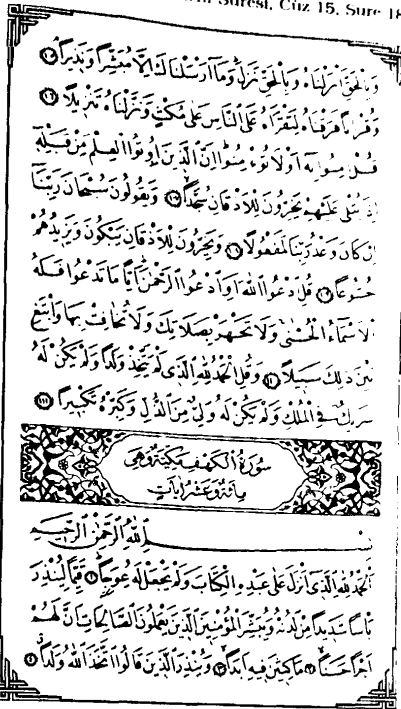 Suresi, Cüz 15, Sure 18
وَبِالْحَقِّ اَنْزَلْنَاهُ وَبِالْحَقِّ نَزَلَ وَمَا اَرْسَلْنَاكَ اِلَّا مُبَشِّرًا وَنَذِيرًا ١٠٥
وَقُرْاٰنًا فَرَقْنَاهُ لِتَقْرَاَهُ عَلَى النَّاسِ عَلٰى مُكْثٍ وَنَزَّلْنَاهُ تَنْزِيلًا ١٠٦
قُلْ اٰمِنُوا بِهِ اَوْ لَا تُؤْمِنُوا اِنَّ الَّذِينَ اُوتُوا الْعِلْمَ مِنْ قَبْلِهِ
اِذَا يُتْلٰى عَلَيْهِمْ يَخِرُّونَ لِلْاَذْقَانِ سُجَّدًا ١٠٧ وَيَقُولُونَ سُبْحَانَ رَبِّنَا
اِنْ كَانَ وَعْدُ رَبِّنَا لَمَفْعُولًا ١٠٨ وَيَخِرُّونَ لِلْاَذْقَانِ يَبْكُونَ وَيَزِيدُهُمْ
خُشُوعًا ١٠٩ قُلِ ادْعُوا اللّٰهَ اَوِ ادْعُوا الرَّحْمٰنَ اَيًّا مَا تَدْعُوا فَلَهُ
الْاَسْمَاءُ الْحُسْنٰى وَلَا تَجْهَرْ بِصَلَاتِكَ وَلَا تُخَافِتْ بِهَا وَابْتَغِ
بَيْنَ ذٰلِكَ سَبِيلًا ١١٠ وَقُلِ الْحَمْدُ لِلّٰهِ الَّذِى لَمْ يَتَّخِذْ وَلَدًا وَلَمْ يَكُنْ لَهُ
شَرِيكٌ فِى الْمُلْكِ وَلَمْ يَكُنْ لَهُ وَلِىٌّ مِنَ الذُّلِّ وَكَبِّرْهُ تَكْبِيرًا ١١١
سُورَةُ الْكَهْفِ مَكِّيَّةٌ وَهِىَ
مِائَةٌ وَعَشْرُ اٰيَاتٍ
بِسْمِ اللّٰهِ الرَّحْمٰنِ الرَّحِيمِ
اَلْحَمْدُ لِلّٰهِ الَّذِى اَنْزَلَ عَلٰى عَبْدِهِ الْكِتَابَ وَلَمْ يَجْعَلْ لَهُ عِوَجًا ١ قَيِّمًا لِيُنْذِرَ
بَاْسًا شَدِيدًا مِنْ لَدُنْهُ وَيُبَشِّرَ الْمُؤْمِنِينَ الَّذِينَ يَعْمَلُونَ الصَّالِحَاتِ اَنَّ لَهُمْ
اَجْرًا حَسَنًا ٢ مَاكِثِينَ فِيهِ اَبَدًا ٣ وَيُنْذِرَ الَّذِينَ قَالُوا اتَّخَذَ اللّٰهُ وَلَدًا ٤